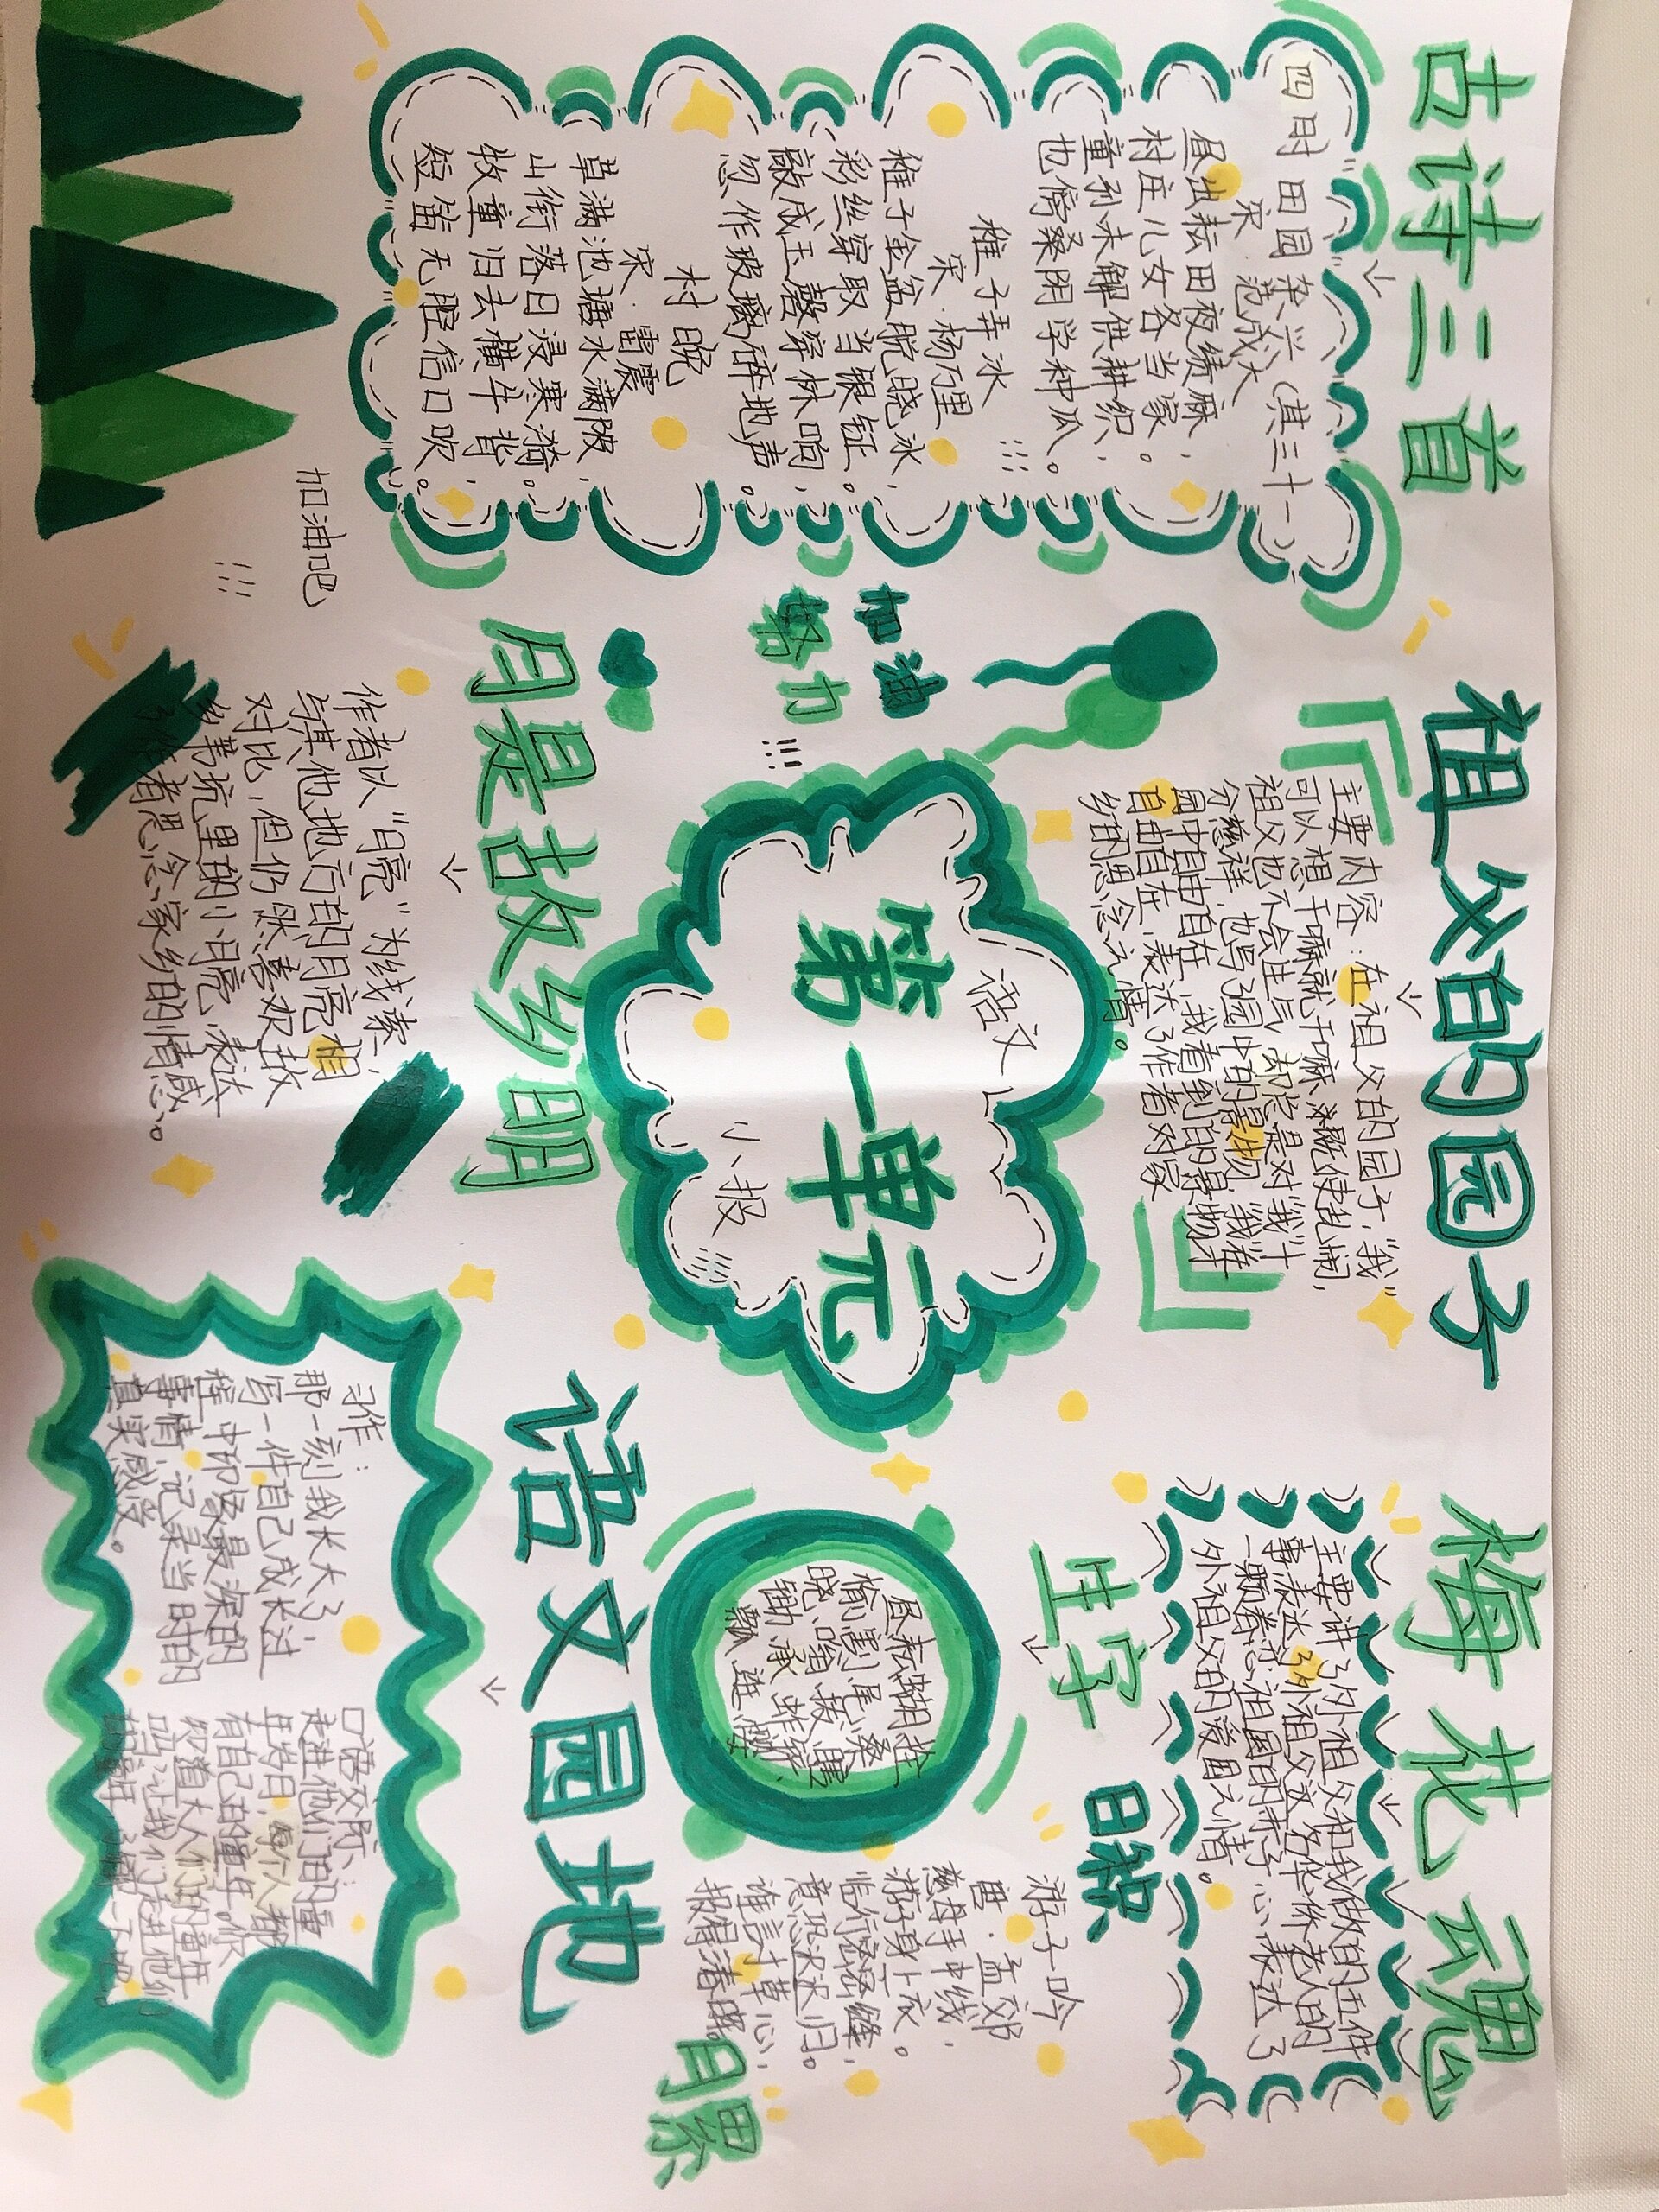 古诗三首
四时田园杂兴(其三十一)
宋·范成大
昼出耘田夜绩麻,
村庄儿女各当家。
童孙未解供耕织,
也傍桑阴学种瓜。
稚子弄冰
宋·杨万里
稚子金盆脱晓冰,
彩丝穿取当银钲。
敲成玉磬穿林响,
忽作玻璃碎地声。
村晚
宋·雷震
草满池塘水满陂,
山衔落日浸寒漪。
牧童归去横牛背,
短笛无腔信口吹。
加油吧
祖父的园子
主要内容:在祖父的园子,"我"
可以想干嘛就干嘛
祖父也不会生气
分慈祥,也写了园中的景物
园中自由自在,我看到的景物
自由自在,表达了作者对家
乡的思念之情。
加油
努力
语文
第一单元
小报
月是故乡明
作者以"月亮"为线索,
与其他地方的月亮相
对比,但仍然喜欢故
乡苇坑里的小月亮,表达
了作者思念家乡的情感。
梅花魂
主要讲了外祖父和我做的五件
事,表达了外祖父这名华侨老人的
一颗眷恋祖国的赤子心,表达了
外祖父的爱国之情。
生字
昼耘蝴蚱
榆割尾桑
晓、嗡拔
锄承蚌
飘逛
日积
月累
游子吟
唐·孟郊
慈母手中线,
游子身上衣。
临行密密缝,
意恐迟迟归。
谁言寸草心,
报得春晖。
语文园地
习作:
那一刻我长大了,
写一件自己成长过
程中印象最深的
事情,记录当时的
真实感受。
口语交际:
走进他们的童
年岁月,每个人都
有自己的童年。你
知道大人们的童年
吗?让我们走进他们